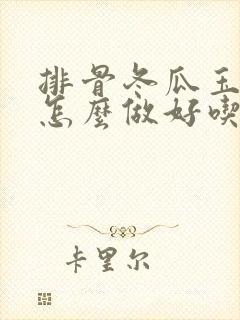 排骨冬瓜玉
怎麼做好喫
卡里尔